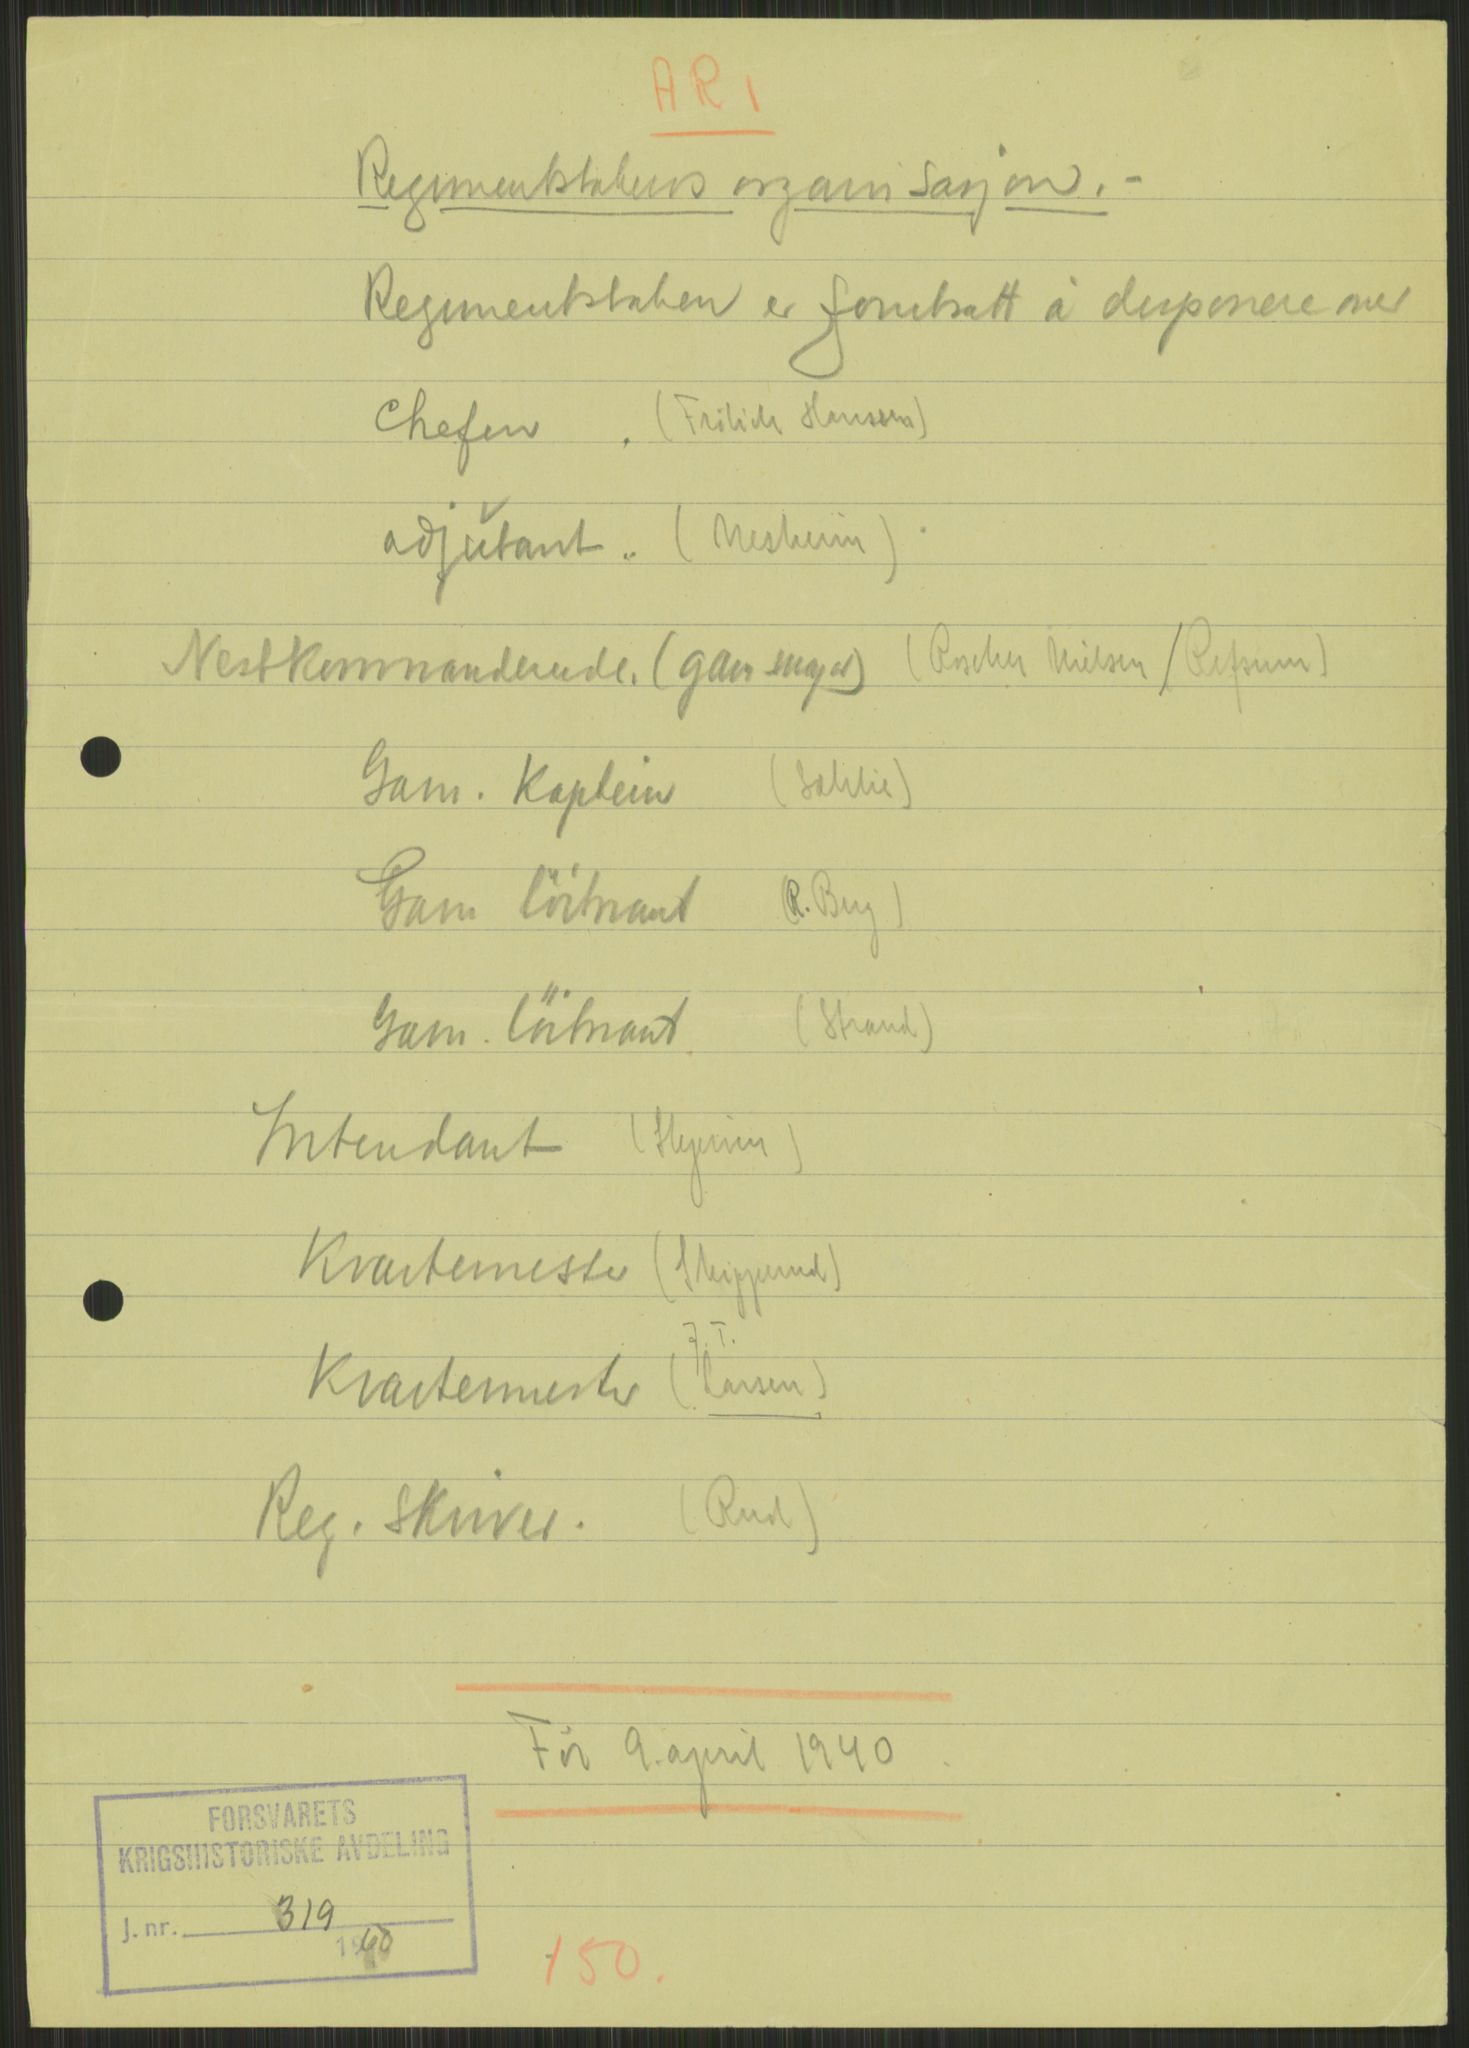 AR 1
Regimentstabens organisasjon. -
Regimentstaben er forutsatt å disponere over
Chefen . (Frölich Hanssen)
adjutant .. (Nesheim)
Nestkommanderende. (gam major) (Roscher Nielsen / Refsum)
Gam. Kaptein
Gam löitnant (R. Berg)
Gam. löitnant (Strand)
Intendant
Kvartermester
J. T.
Kvartermester (Larsen)
Reg. skriver. (Rud)
För 9. april 1940
FORSVARETS
KRIGSHISTORISKE AVDELING
J. nr. 319
1960
150.